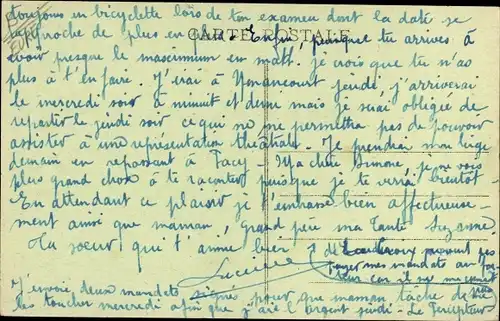 toujours en bicyclette lors de ton examen dont la date se
rapproche de plus en plus. Enfin, puisque tu arrives à
CARTE POSTALE
avoir presque le maximum en math. je crois que tu n'as
plus à t'en faire. J'irai à Nonancourt jeudi, j'arriverai
le mercredi soir à minuit et demi mais je serai obligée de
repartir le jeudi soir ce qui ne me permettra pas de pouvoir
assister à une représentation théâtrale. Je prendrai mon linge
demain en repassant à Pacy - Ma chère Simone, je ne vois
plus grand chose à te raconter puisque je te verrai bientôt -
En attendant ce plaisir je t'embrasse bien affectueuse-
ment ainsi que maman, grand père ma Tante Suzanne.
Ta soeur qui t'aime bien
Lucienne
J'envoie deux mandats signés pour que maman tâche de
les toucher mercredi afin que j'aie l'argent jeudi - Le